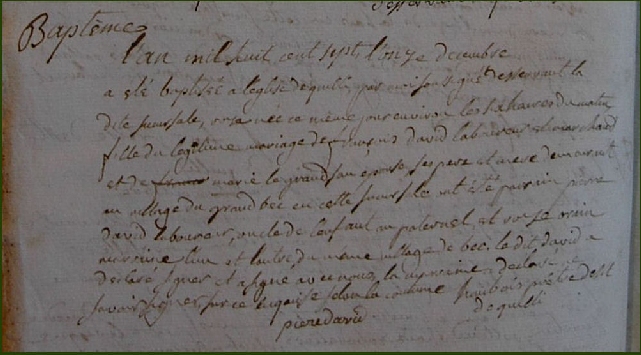 Baptême
l'an mil huit cent sept l'onze decembre
a été baptisée a l'eglise d'equilli, par moi soussigné desservant la
dite succursale, rose née ce même jour environ les six heures du matin
fille du legitime mariage de françois david laboureur et marchand
et de marie le grand son epouse, ses pere et mere demeurant
au village du grand bec en cette succursale, a été parrain pierre
david laboureur, oncle de l'enfant paternel, et rose
marraine l'un et l'autre du meme village de bec, le dit david a
declaré signer et a signé avec nous, la marraine a declaré ne
savoir signer, sur ce lecture selon la coutume
pierre david
prêtre dest
d'equilli